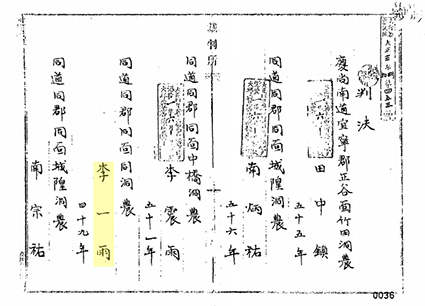 判決
慶尚南道宜寧郡正谷面竹田洞農
田中鎮
五十五年
同道同郡同面城隍洞農
南炳祐
五十六年
同道同郡同面中橋洞農
李震雨
五十一年
同道同郡同面同洞農
李一雨
四十九年
同道同郡同面城隍洞農
南宗祐
0036